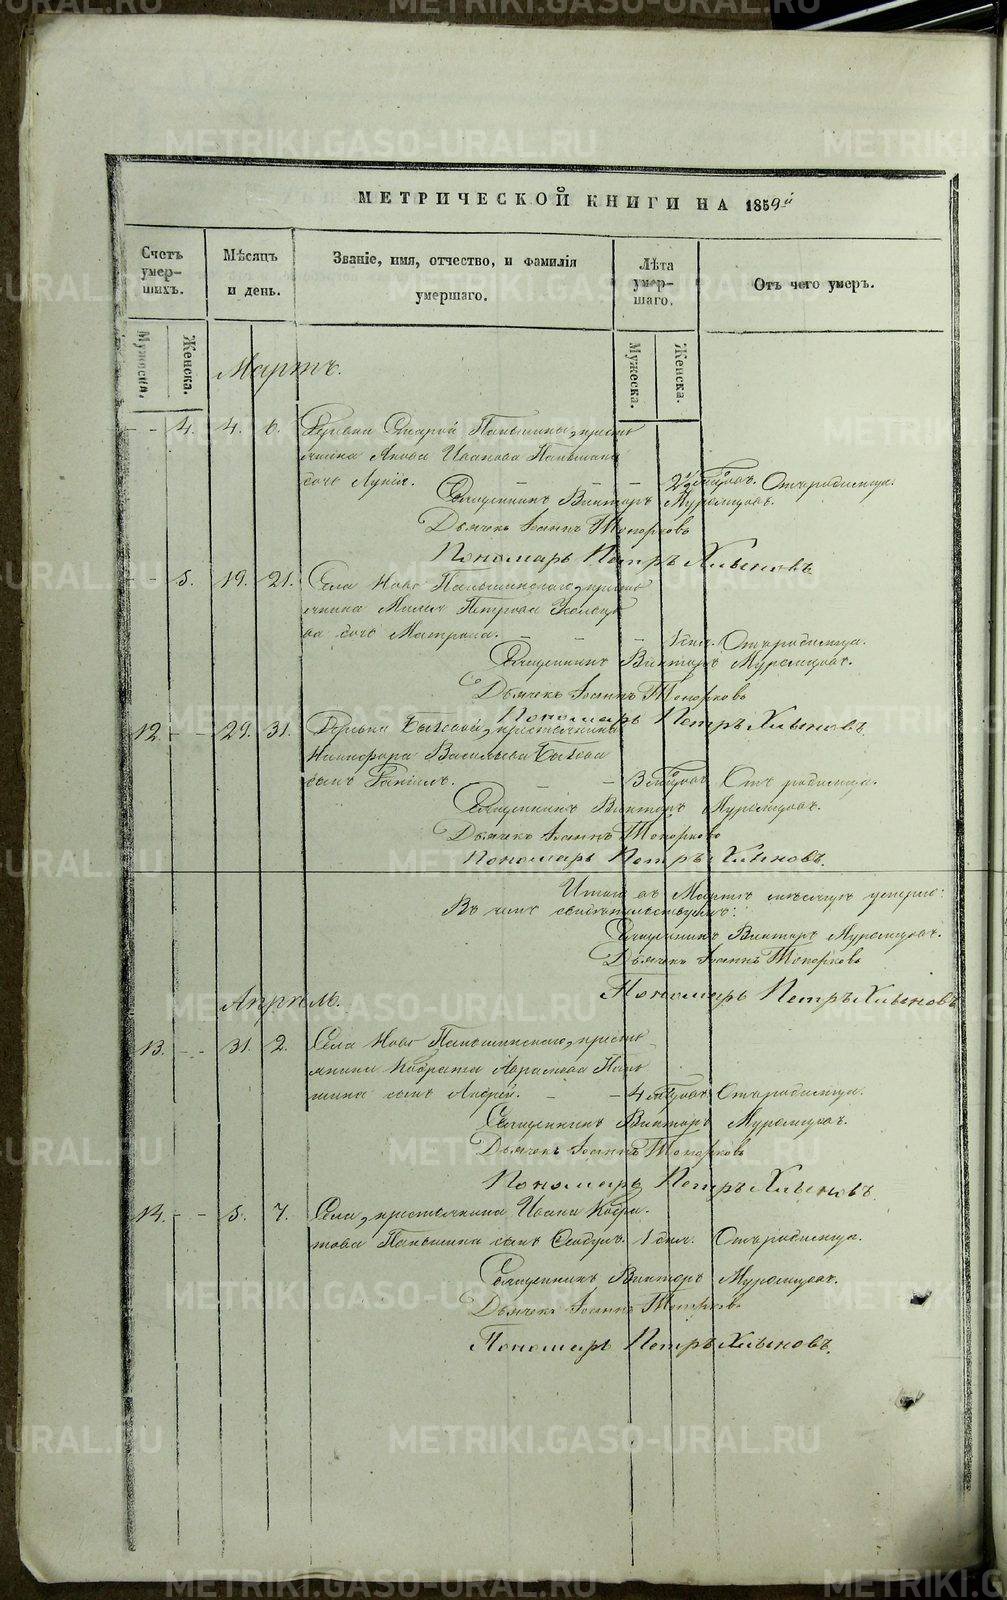 METRIKI.GASO-URAL.RU
МЕТРИЧЕСКОЙ КНИГИ НА 1859й
Счетъ умер-шихъ.
Мѣсяцъ и день.
Званіе, имя, отчество, и фамилія умершаго.
Лѣта умер-шаго.
Отъ чего умеръ.
Мужеска.
Женска.
Мужеска.
Женска.
Мартъ.
4. 4. 6. Деревни Старой Паньшины кресть
янина Якова Иванова Паньшина
дочь
Отъ родимца.
Священникъ Викторъ Муромцовъ.
Дьячекъ Іоаннъ Топорковъ
Пономарь Петръ Хлыновъ
5. 19. 21. Села Ново Паньшинскаго кресть
янина Петрова
ва дочь Матрона. 1 дня. Отъ родимца.
Священникъ Викторъ Муромцовъ.
Дьячекъ Іоаннъ Топорковъ
Пономарь Петръ Хлыновъ.
12. 29. 31. Деревни Быковой, крестьянина
Никифора Васильева Быкова
сынъ Даніилъ. 3 Отъ родимца.
Священникъ Викторъ Муромцовъ.
Дьячекъ Іоаннъ Топорковъ
Пономарь Петръ Хлыновъ.
Итого въ Мартѣ мѣсяцѣ умерло:
Въ чемъ свидѣтельствуемъ:
Священникъ Викторъ Муромцовъ.
Дьячекъ Іоаннъ Топорковъ
Пономарь Петръ Хлыновъ
Апрѣль.
13. 31. 2. Села Ново Паньшинскаго, кресть
янина Кодрата Абрамова Пань
шина сынъ Андрей. 4 Отъ родимца.
Священникъ Викторъ Муромцовъ.
Дьячекъ Іоаннъ Топорковъ
Пономарь Петръ Хлыновъ.
14. 5. 7. Села, крестьянина Ивана Кодра-
това Паньшина сынъ Ѳеодулъ. 1 дня. Отъ родимца.
Священникъ Викторъ Муромцовъ.
Дьячекъ Іоаннъ Топорковъ
Пономарь Петръ Хлыновъ.